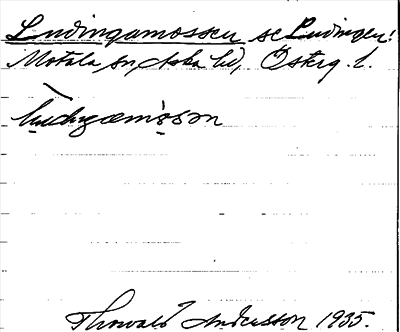 Ludingamossen se Ludingen!
Motala sn, Aska hd, Österg. l.
Thorvald Andersson 1935.